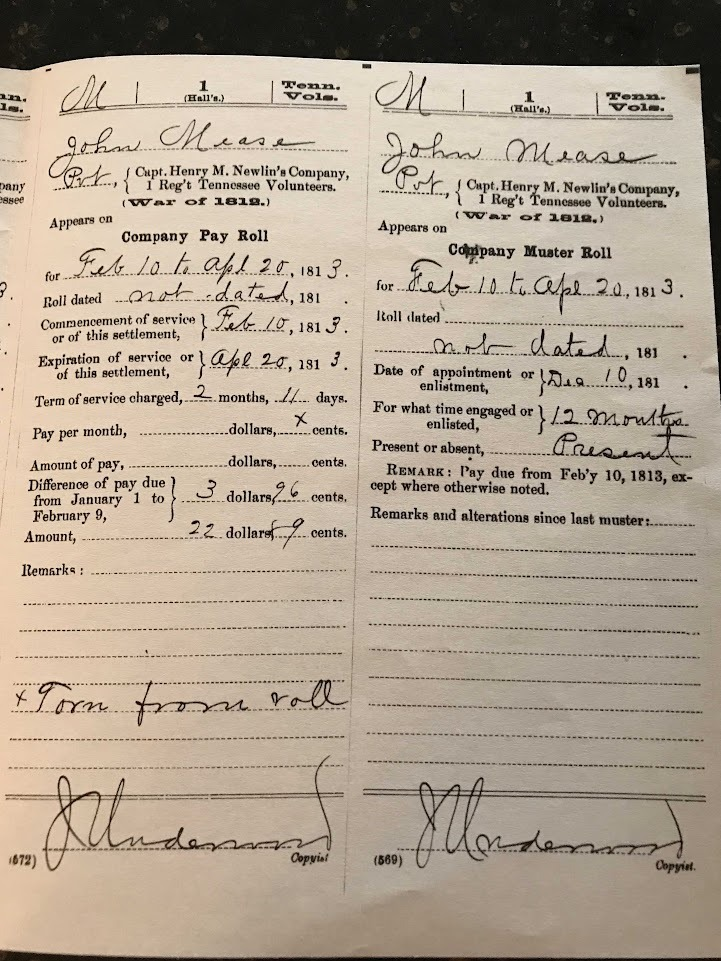 nn.
ls.
pany
essee
3.
M | 1 | Tenn.
(Hall's.) Vols.
John Mease
Pvt, { Capt. Henry M. Newlin's Company,
1 Reg't Tennessee Volunteers.
(War of 1812.)
Appears on
Company Pay Roll
for Feb 10 to Apl 20, 1813.
Roll dated not dated, 181 .
Commencement of service
or of this settlement, } Feb 10, 1813.
Expiration of service or
of this settlement, } Apl 20, 1813.
Term of service charged, 2 months, 11 days.
Pay per month, dollars, x cents.
Amount of pay, dollars, cents.
Difference of pay due
from January 1 to } 3 dollars, 96 cents.
February 9,
Amount, 22 dollars, 9 cents.
Remarks:
x Torn from roll
J Underwood
(572) Copyist
M | 1 | Tenn.
(Hall's.) Vols.
John Mease
Pvt, { Capt. Henry M. Newlin's Company,
1 Reg't Tennessee Volunteers.
(War of 1812.)
Appears on
Company Muster Roll
for Feb 10 to Apl 20, 1813.
Roll dated
not dated, 181 .
Date of appointment or
enlistment, } Dec 10, 181 .
For what time engaged or
enlisted, } 12 Months
Present or absent, Present
REMARK: Pay due from Feb'y 10, 1813, ex-
cept where otherwise noted.
Remarks and alterations since last muster:
J Underwood
(569) Copyist.